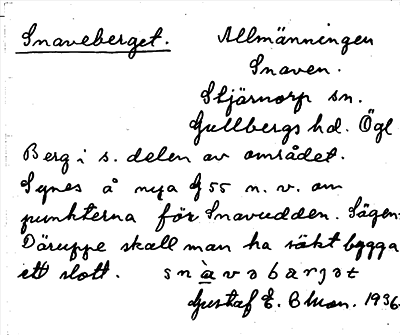 Snaveberget. Allmänningen
Snaven.
Stjärnorp sn.
Gullbergs hd. Ögl
Berg i s. delen av området.
Synes å nya G 55 n. v. om
punkterna för Snavudden. Sägen:
Däruppe skall man ha säkt bygga
ett slott. snàvəbarjət
Gustaf E. Ohson. 1936